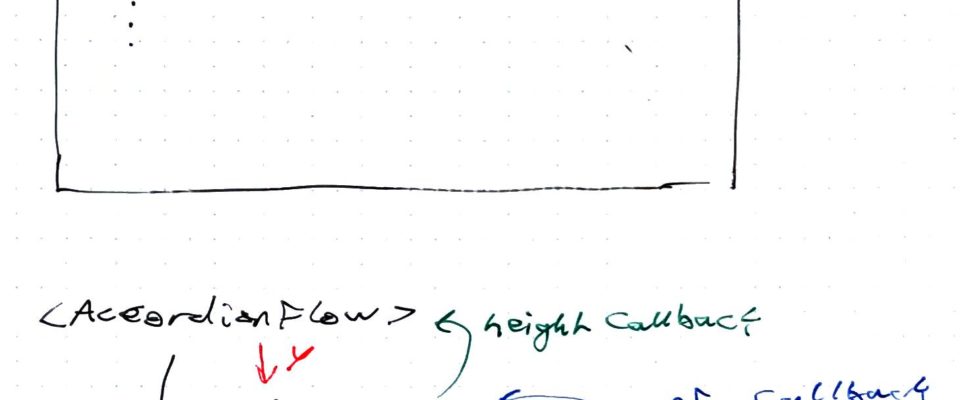 <AccordianFlow> height Callback
y
callback